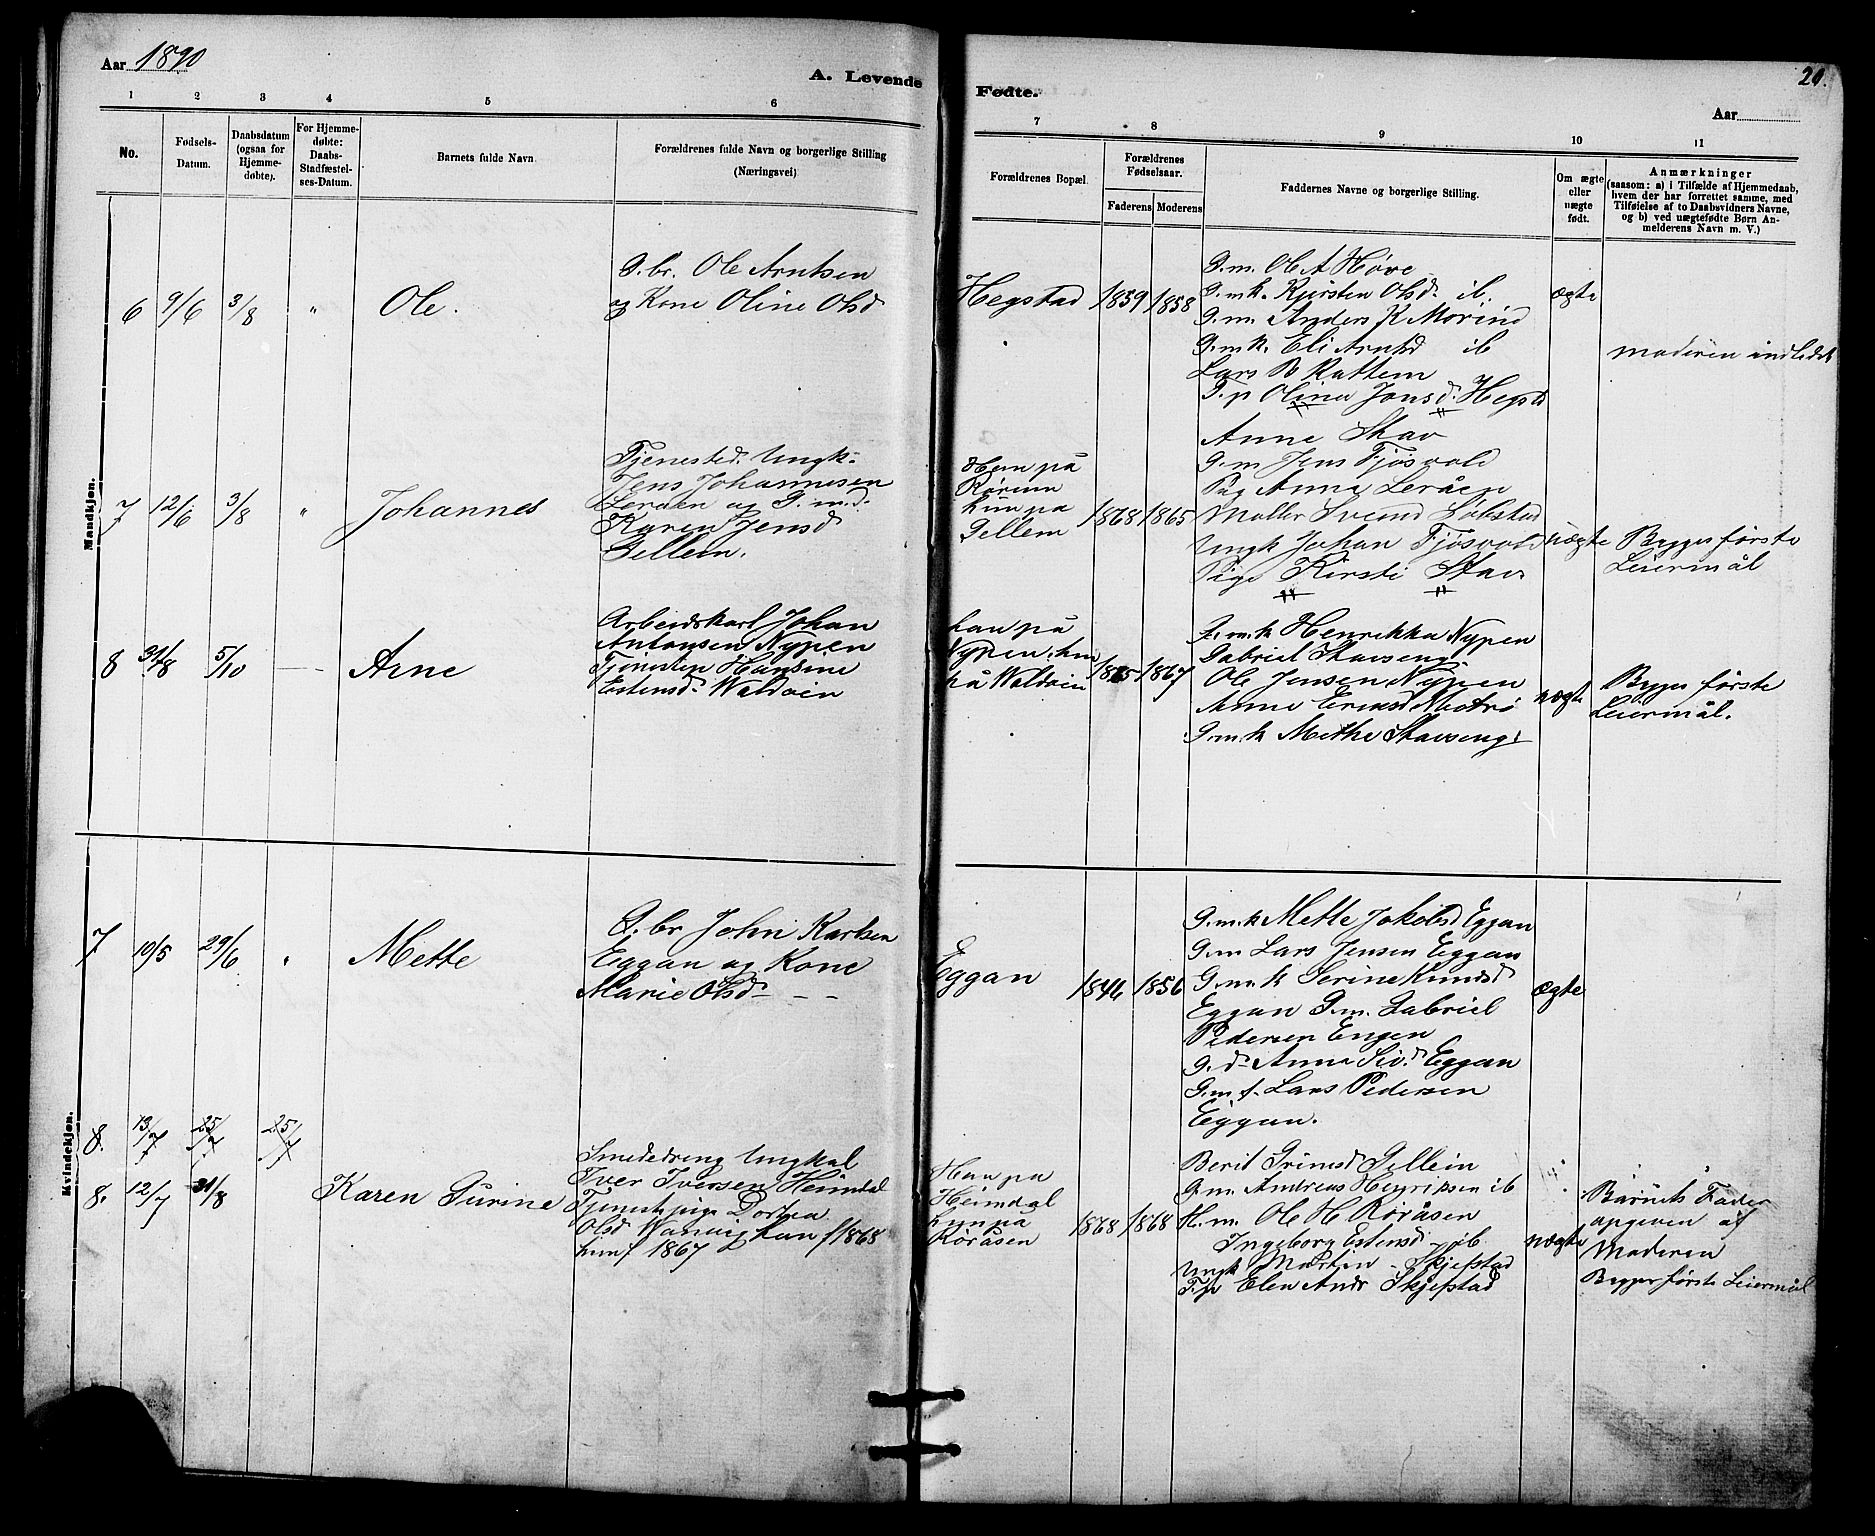 Aar 1890
A. Levende Fødte.
20.
Aar
1 2 3 4 5 6 7 8 9 10 11
No.
Fødsels-Datum.
Daabsdatum (ogsaa for Hjemme-døbte).
For Hjemme-døbte: Daabs-Stadfæstel-ses-Datum.
Barnets fulde Navn
Forældrenes fulde Navn og borgerlige Stilling
(Næringsvei)
Forældrenes Bopæl.
Forældrenes Fødselsaar.
Faderens Moderens
Faddernes Navne og borgerlige Stilling.
Om ægte eller uægte født.
Anmærkninger
(saasom: a) i Tilfælde af Hjemmedaab,
hvem der har forrettet samme, med
Tilføielse af to Daabsvidners Navne,
og b) ved uægtefødte Børn An-
melderens Navn m. V.)
Mandkjøn.
6 9/6 3/8 " Ole.
G.br. Ole Arntsen
og Kone Oline Olsd
Hegstad 1859 1858
G.m. Ole A Høve
G.mk. Kjersten Olsd. ib.
G.m. Anders K Morind
G.mk. Eli Arntsd ib
Lars B Rattem
G.p Olina Jonsd. Hegstd
ægte
moderen indledet
7 12/6 3/8 " Johannes
Tjenested. Ungk.
Jens Johannesen
Leraen og G.m.d.
Karen Jensd
Gellein.
Han på
Rørum
hun på
Gellem
1868 1865
Anne Stav
G.m Jens Fjøsvold
Pig Anna Leråen
Møller Svend Løbstad
Ungk Johan Fjøsvold
Pige Kirsti Stav
uægte
Begges første
Leiermål
8 31/8 5/10 Arne
Arbeidskarl Johan
Antonsen Nypen
Tjenesten Hansine
Estensd. Waldøien
han på
Nypen, hun
på Waldøien
1865 1867
G.m.k Henrikka Nypen
Gabriel Stavseng
Ole Jensen Nypen
Anne Eriksd Mostrø
G.m.k Methe Stavseng
uægte
Begges første
Leiermål.
Kvindekjøn.
7 19/5 29/6 " Mette
G.br John Karlsen
Eggan og Kone
Marie Olsd - - -
Eggan 1846 1856
G.m.k Mette Jakobsd Eggan
G.m Lars Jensen Eggan
G.m.k Serine Knudsd
Eggan G.m. Gabriel
Pedersen Engen
G.d. Anna Sivd Eggan
G.m.f. Lars Pedersen
Eggan.
ægte
8. 13/7 25/7 25/7
8. 12/7 31/8 Karen Gurine
Smededreng Ungkal
Iver Iversen Heimdal
Tjenestepige Dorthea
Olsd Wanvig han f 1868
hun f 1867
Han på
Heimdal
hun på
Røråsen
1868 1868
Berit Grimsd Gellein
G.m. Andreas Henriksen ib
H.m. Ole H Røråsen
Ingeborg Estensd - ib
Ungk Martin - Skjefstad
T.p Elen Andr Skjefstad
uægte
Barnets Fader
opgiven af
Moderen
Begges første Leiermål